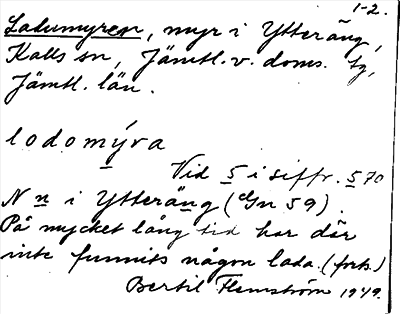 1-2.
Ladumyren, myr i Ytteräng,
Kalls sn, Jämtl. v. doms. tg,
Jämtl. län.
lodomýra
Vid 5 i siffr. 570
N n i Ytteräng (Gn 59).
På mycket lång tid har där
inte funnits någon lada. (forts.)
Bertil Flemström 1949.